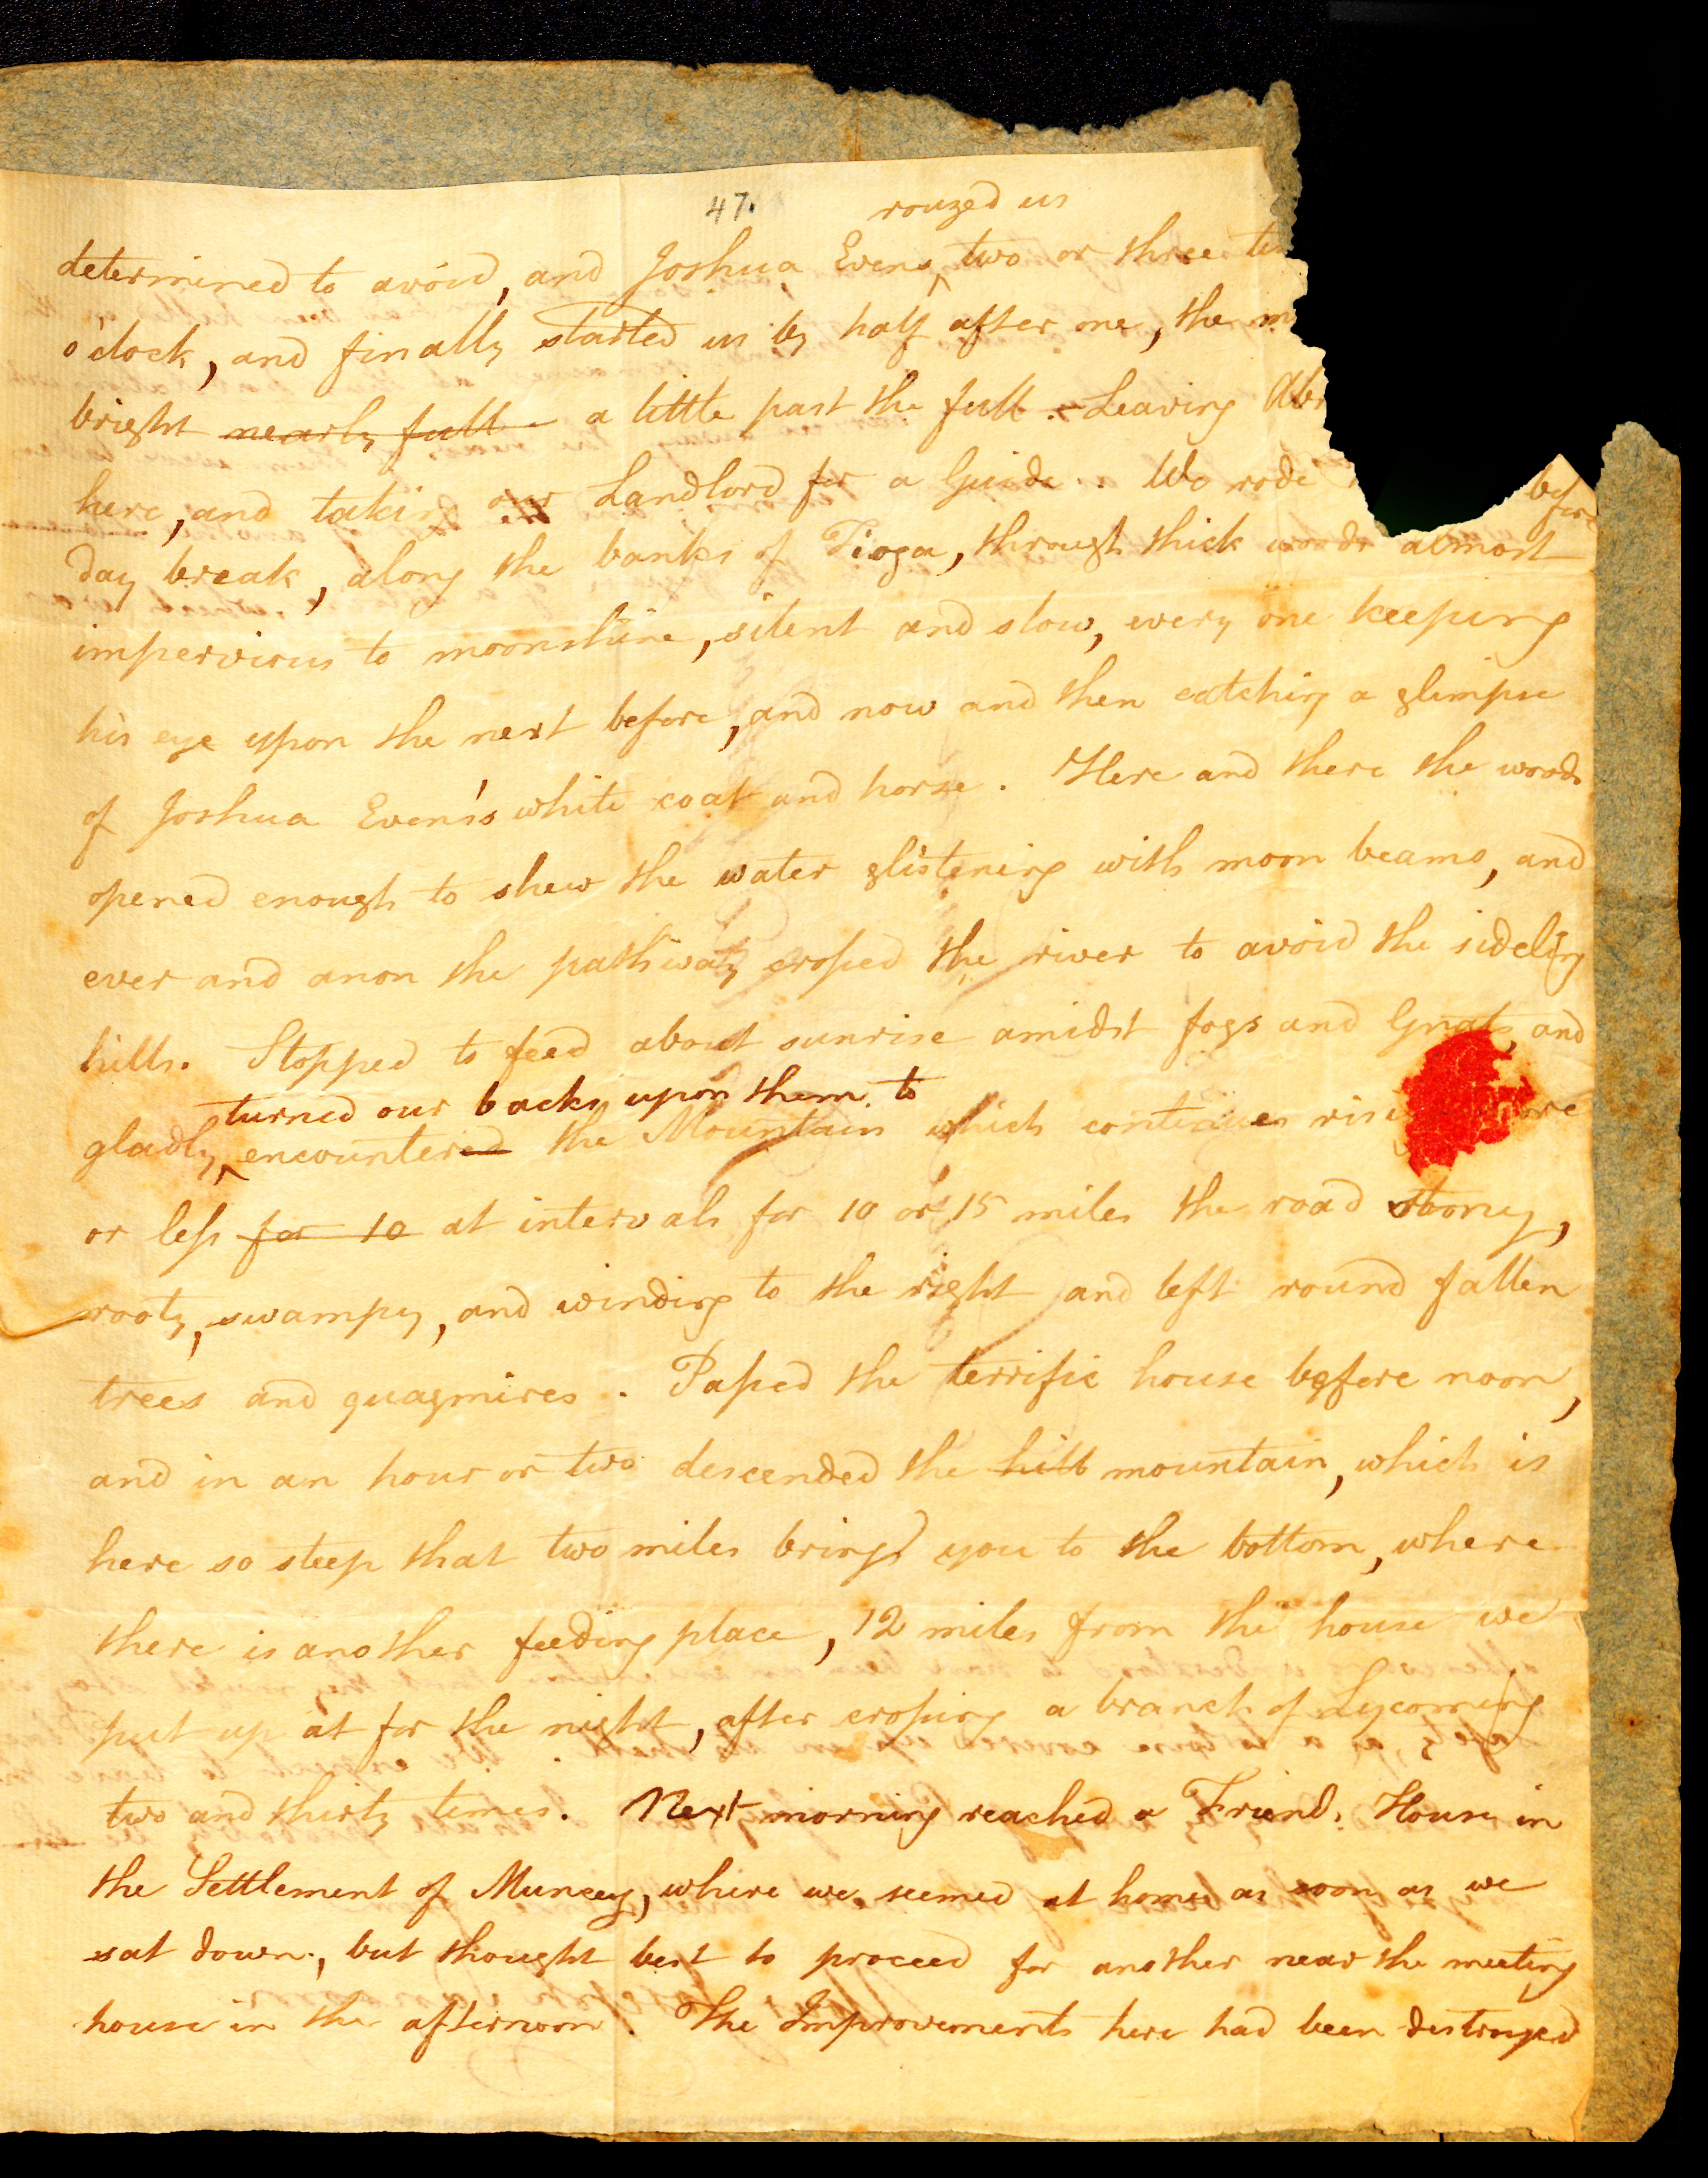 47.
rouzed us
determined to avoid, and Joshua Evens two or three
o'clock, and finally started us by half after one, the
bright nearly full a little past the full. Leaving
here, and taking our Landlord for a Guide. We rode before
day break, along the banks of Tioga, through thick woods almost
impervious to moonshine, silent and slow, every one keeping
his eye upon the next before, and now and then catching a glimpse
of Joshua Even's white coat and horse. Here and there the woods
opened enough to shew the water glistening with moon beams, and
ever and anon the pathway croſsed the river to avoid the sideling
hills. Stopped to feed about sunrise amidst fogs and Gnats, and
turned our backs upon them to
gladly encountered the Mountain which continues
or leſs for 10 at intervals for 10 or 15 miles the road stoney,
rooty, swampy, and winding to the right and left round fallen
trees and quagmires. Paſsed the terrific house before noon,
and in an hour or two descended the hill mountain, which is
here so steep that two miles brings you to the bottom, where
there is another feeding place, 12 miles from the house we
put up at for the night, after croſsing a branch of Lycoming
two and thirty times. Next morning reached a Friends House in
the Settlement of Muncey, where we seemed at home as soon as we
sat down, but thought best to proceed for another near the meeting
house in the afternoon. The Improvements here had been destroyed